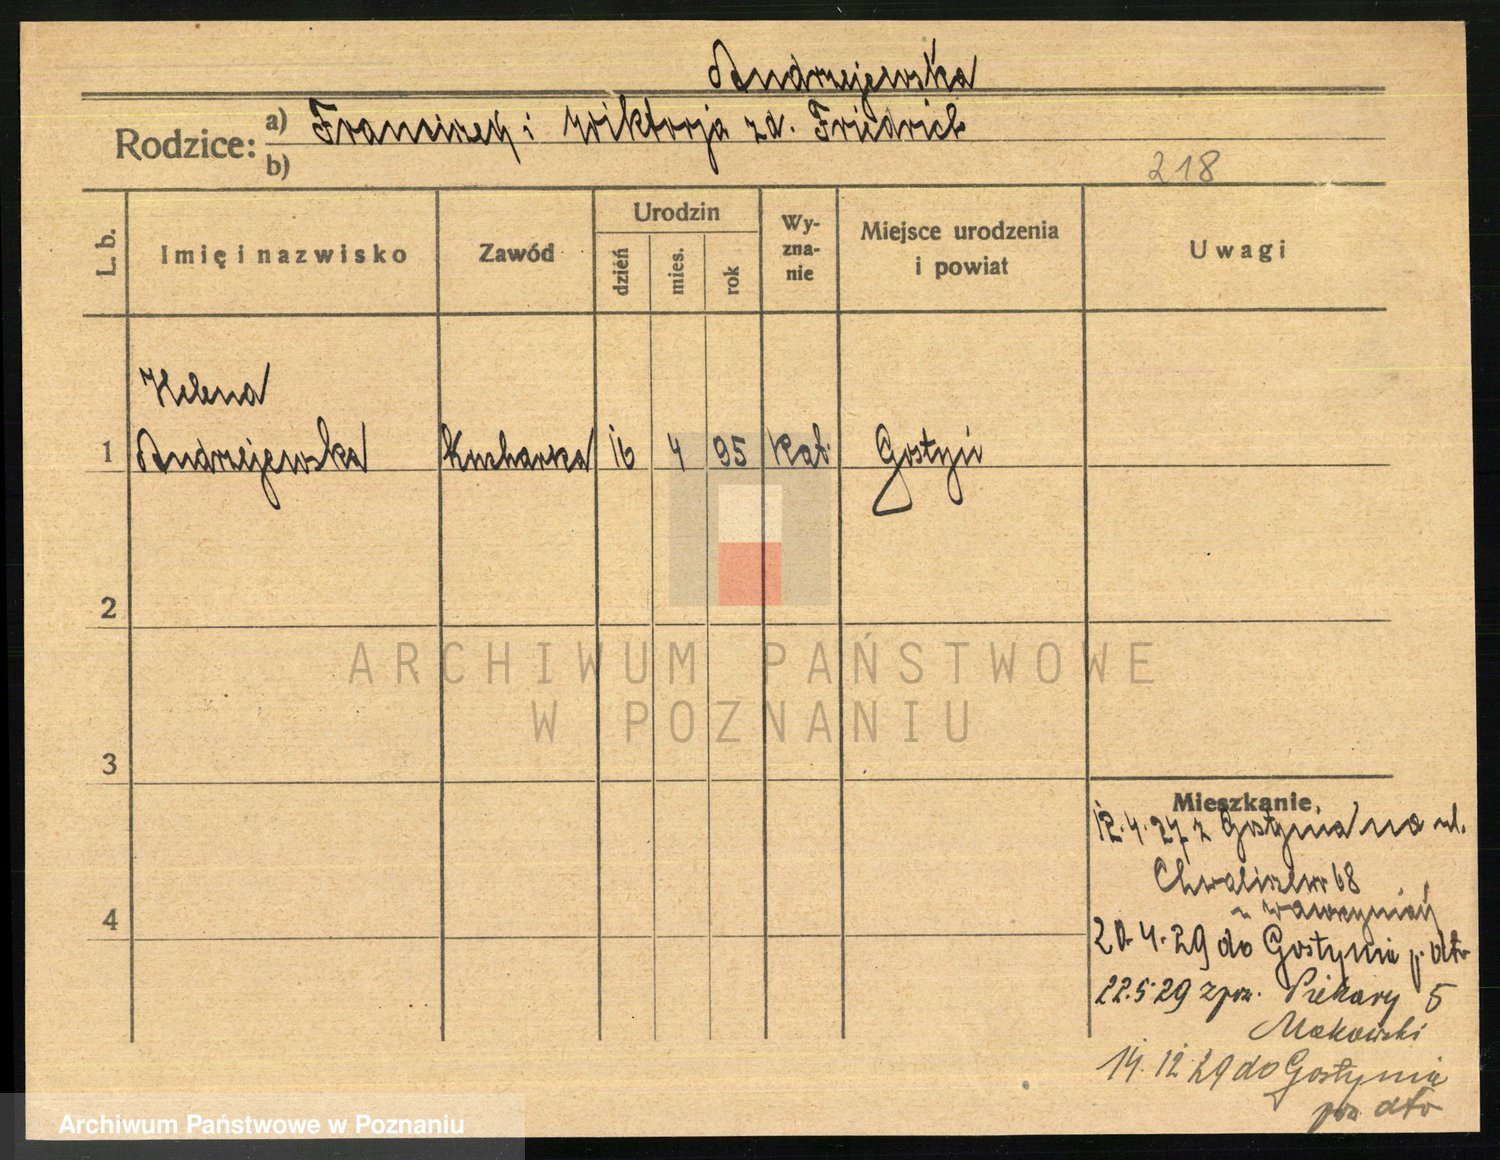 Andrzejewska
Rodzice:
a) Franciszek i Wiktorja zd. Friedrich
b)
218
L. b.
Imię i nazwisko
Zawód
Urodzin
dzień
mies.
rok
Wy-
zna-
nie
Miejsce urodzenia
i powiat
Uwagi
Helena
1 Andrzejewska Kucharka 16 4 95 kat. Gostyń
2
3
4
Mieszkanie.
12.4.27 z Gostynia na ul.
Chwaliszewo 68
u Wawrzyniak
20.4.29 do Gostynia p. dto
22.5.29 z poz. Piekary 5
Makowski
14.12.29 do Gostynia
pow dto
ARCHIWUM PAŃSTWOWE
W POZNANIU
Archiwum Państwowe w Poznaniu